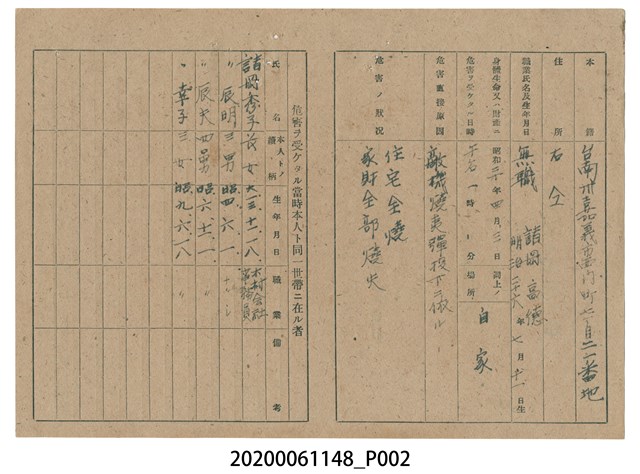 本籍 台南州嘉義市
住所 右仝
職業氏名及生年月日 無職 高德 明治 年七月十一日生
身體生命又ハ財產ニ危害ヲ受ケタル日時 昭和二十年四月三日 同上ノ場所 自家
危害直接原因 敵機燒夷彈投下ニ依ル
危害ノ狀況 住宅全燒
家財全部燒失
危害ヲ受ケタル當時本人ト同一世帶ニ在ル者
氏名 本人トノ續柄 生年月日 職業 備考
長女 大一三、十二、一八、 木材会社事務員
〃 辰明 三男 昭四、六、一、
〃 辰夫 四男 昭六、十二、一、
〃 幸子 三女 昭九、六、一八、
20200061148_P002